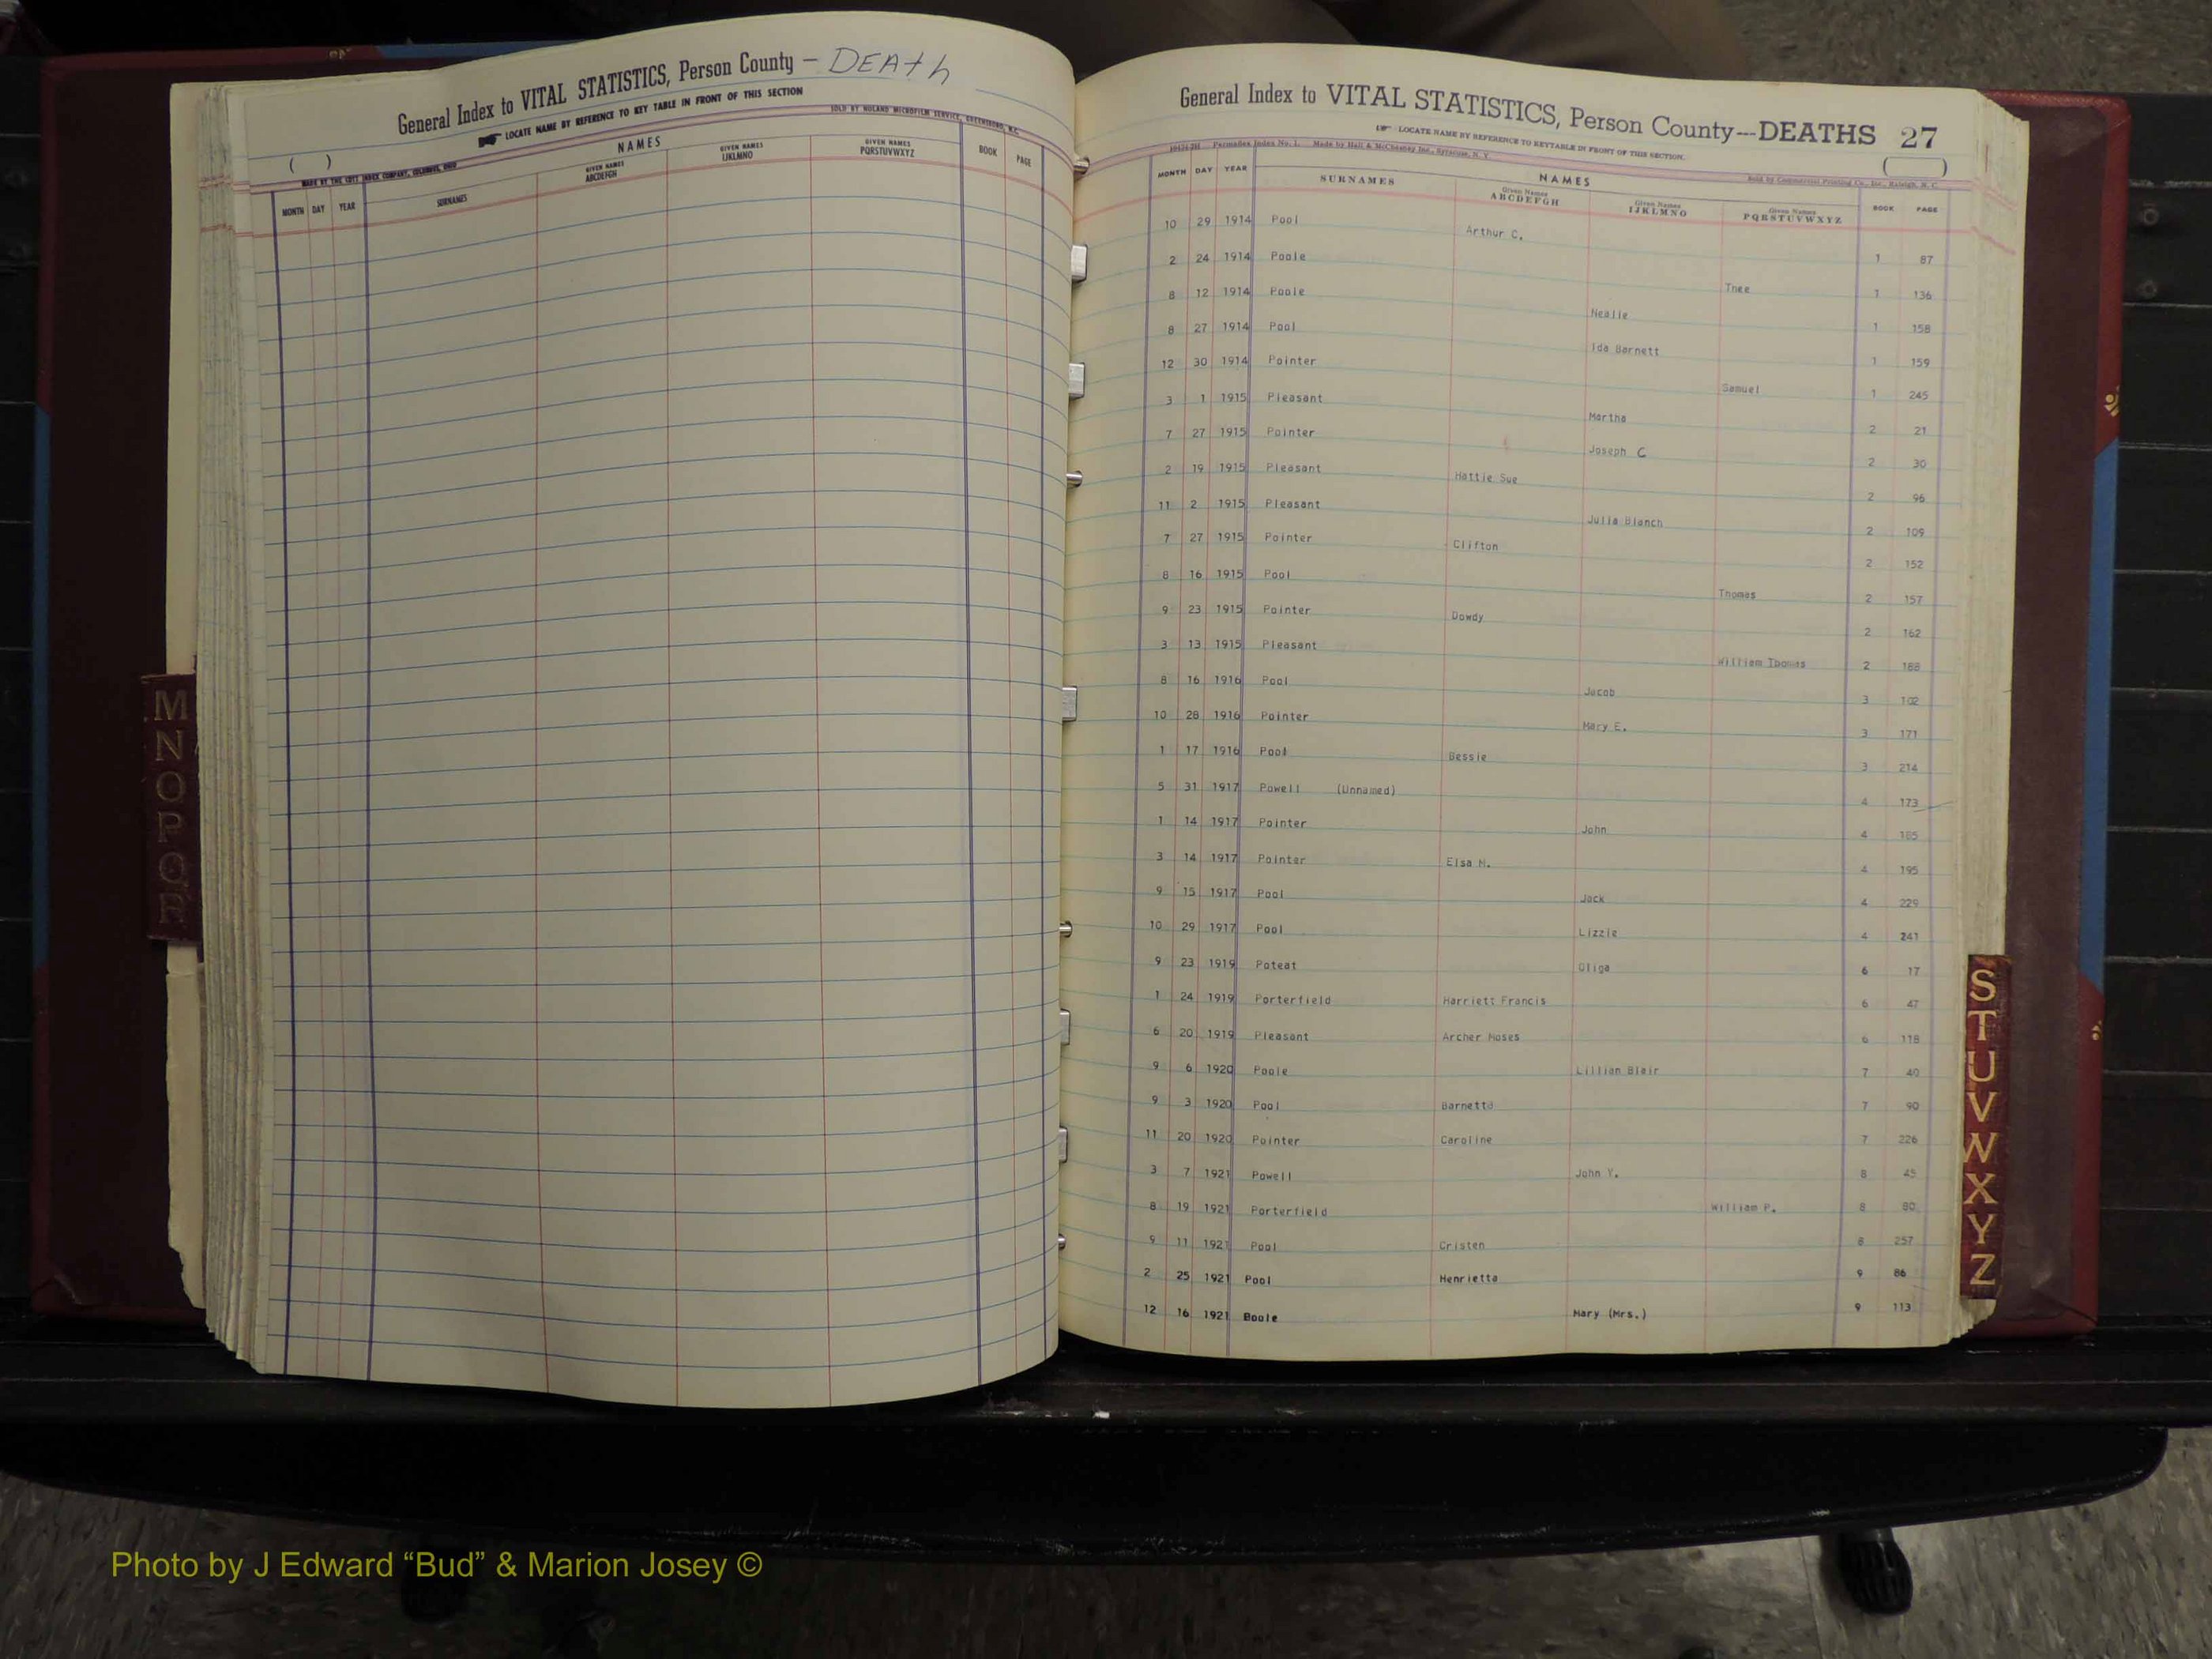 General Index to VITAL STATISTICS, Person County – DEAth
LOCATE NAME BY REFERENCE TO KEY TABLE IN FRONT OF THIS SECTION
SOLD BY NOLAND MICROFILM SERVICE, GREENSBORO, N.C.
( )
MADE BY THE COTT INDEX COMPANY, COLUMBUS, OHIO
NAMES
MONTH DAY YEAR SURNAMES GIVEN NAMES ABCDEFGH GIVEN NAMES IJKLMNO GIVEN NAMES PQRSTUVWXYZ BOOK PAGE
M
N
O
P
Q
R
General Index to VITAL STATISTICS, Person County---DEATHS 27
LOCATE NAME BY REFERENCE TO KEYTABLE IN FRONT OF THIS SECTION.
( )
Made by Hall & McChesney Inc., Syracuse, N. Y.
Sold by Commercial Printing Co., Inc., Raleigh, N. C.
NAMES
MONTH DAY YEAR SURNAMES Given Names ABCDEFGH Given Names IJKLMNO Given Names PQRSTUVWXYZ BOOK PAGE
10 29 1914 Pool Arthur C. 1 87
2 24 1914 Poole 1 136
8 12 1914 Poole Nealie 1 158
8 27 1914 Pool Ida Barnett 1 159
12 30 1914 Pointer Samuel 1 245
3 1 1915 Pleasant Martha 2 21
7 27 1915 Pointer Joseph C 2 30
2 19 1915 Pleasant Hattie Sue 2 96
11 2 1915 Pleasant Julia Blanch 2 109
7 27 1915 Pointer Clifton 2 152
8 16 1915 Pool Thomas 2 157
9 23 1915 Pointer Dowdy 2 162
3 13 1915 Pleasant William Thomas 2 188
8 16 1916 Pool Jacob 3 102
10 28 1916 Pointer Mary E. 3 171
1 17 1916 Pool Bessie 3 214
5 31 1917 Powell (Unnamed) 4 173
1 14 1917 Pointer John 4 185
3 14 1917 Pointer Elsa M. 4 195
9 15 1917 Pool Jack 4 229
10 29 1917 Pool Lizzie 4 241
9 23 1919 Poteat Oliga 6 17
1 24 1919 Porterfield Harriett Francis 6 47
6 20 1919 Pleasant Archer Moses 6 118
9 6 1920 Poole Lillian Blair 7 40
9 3 1920 Pool Barnetta 7 90
11 20 1920 Pointer Caroline 7 226
3 7 1921 Powell John Y. 8 45
8 19 1921 Porterfield William P. 8 80
9 11 1921 Pool Cristen 8 257
2 25 1921 Pool Henrietta 9 86
12 16 1921 Boole Mary (Mrs.) 9 113
S
T
U
V
W
X
Y
Z
Photo by J Edward “Bud” & Marion Josey ©